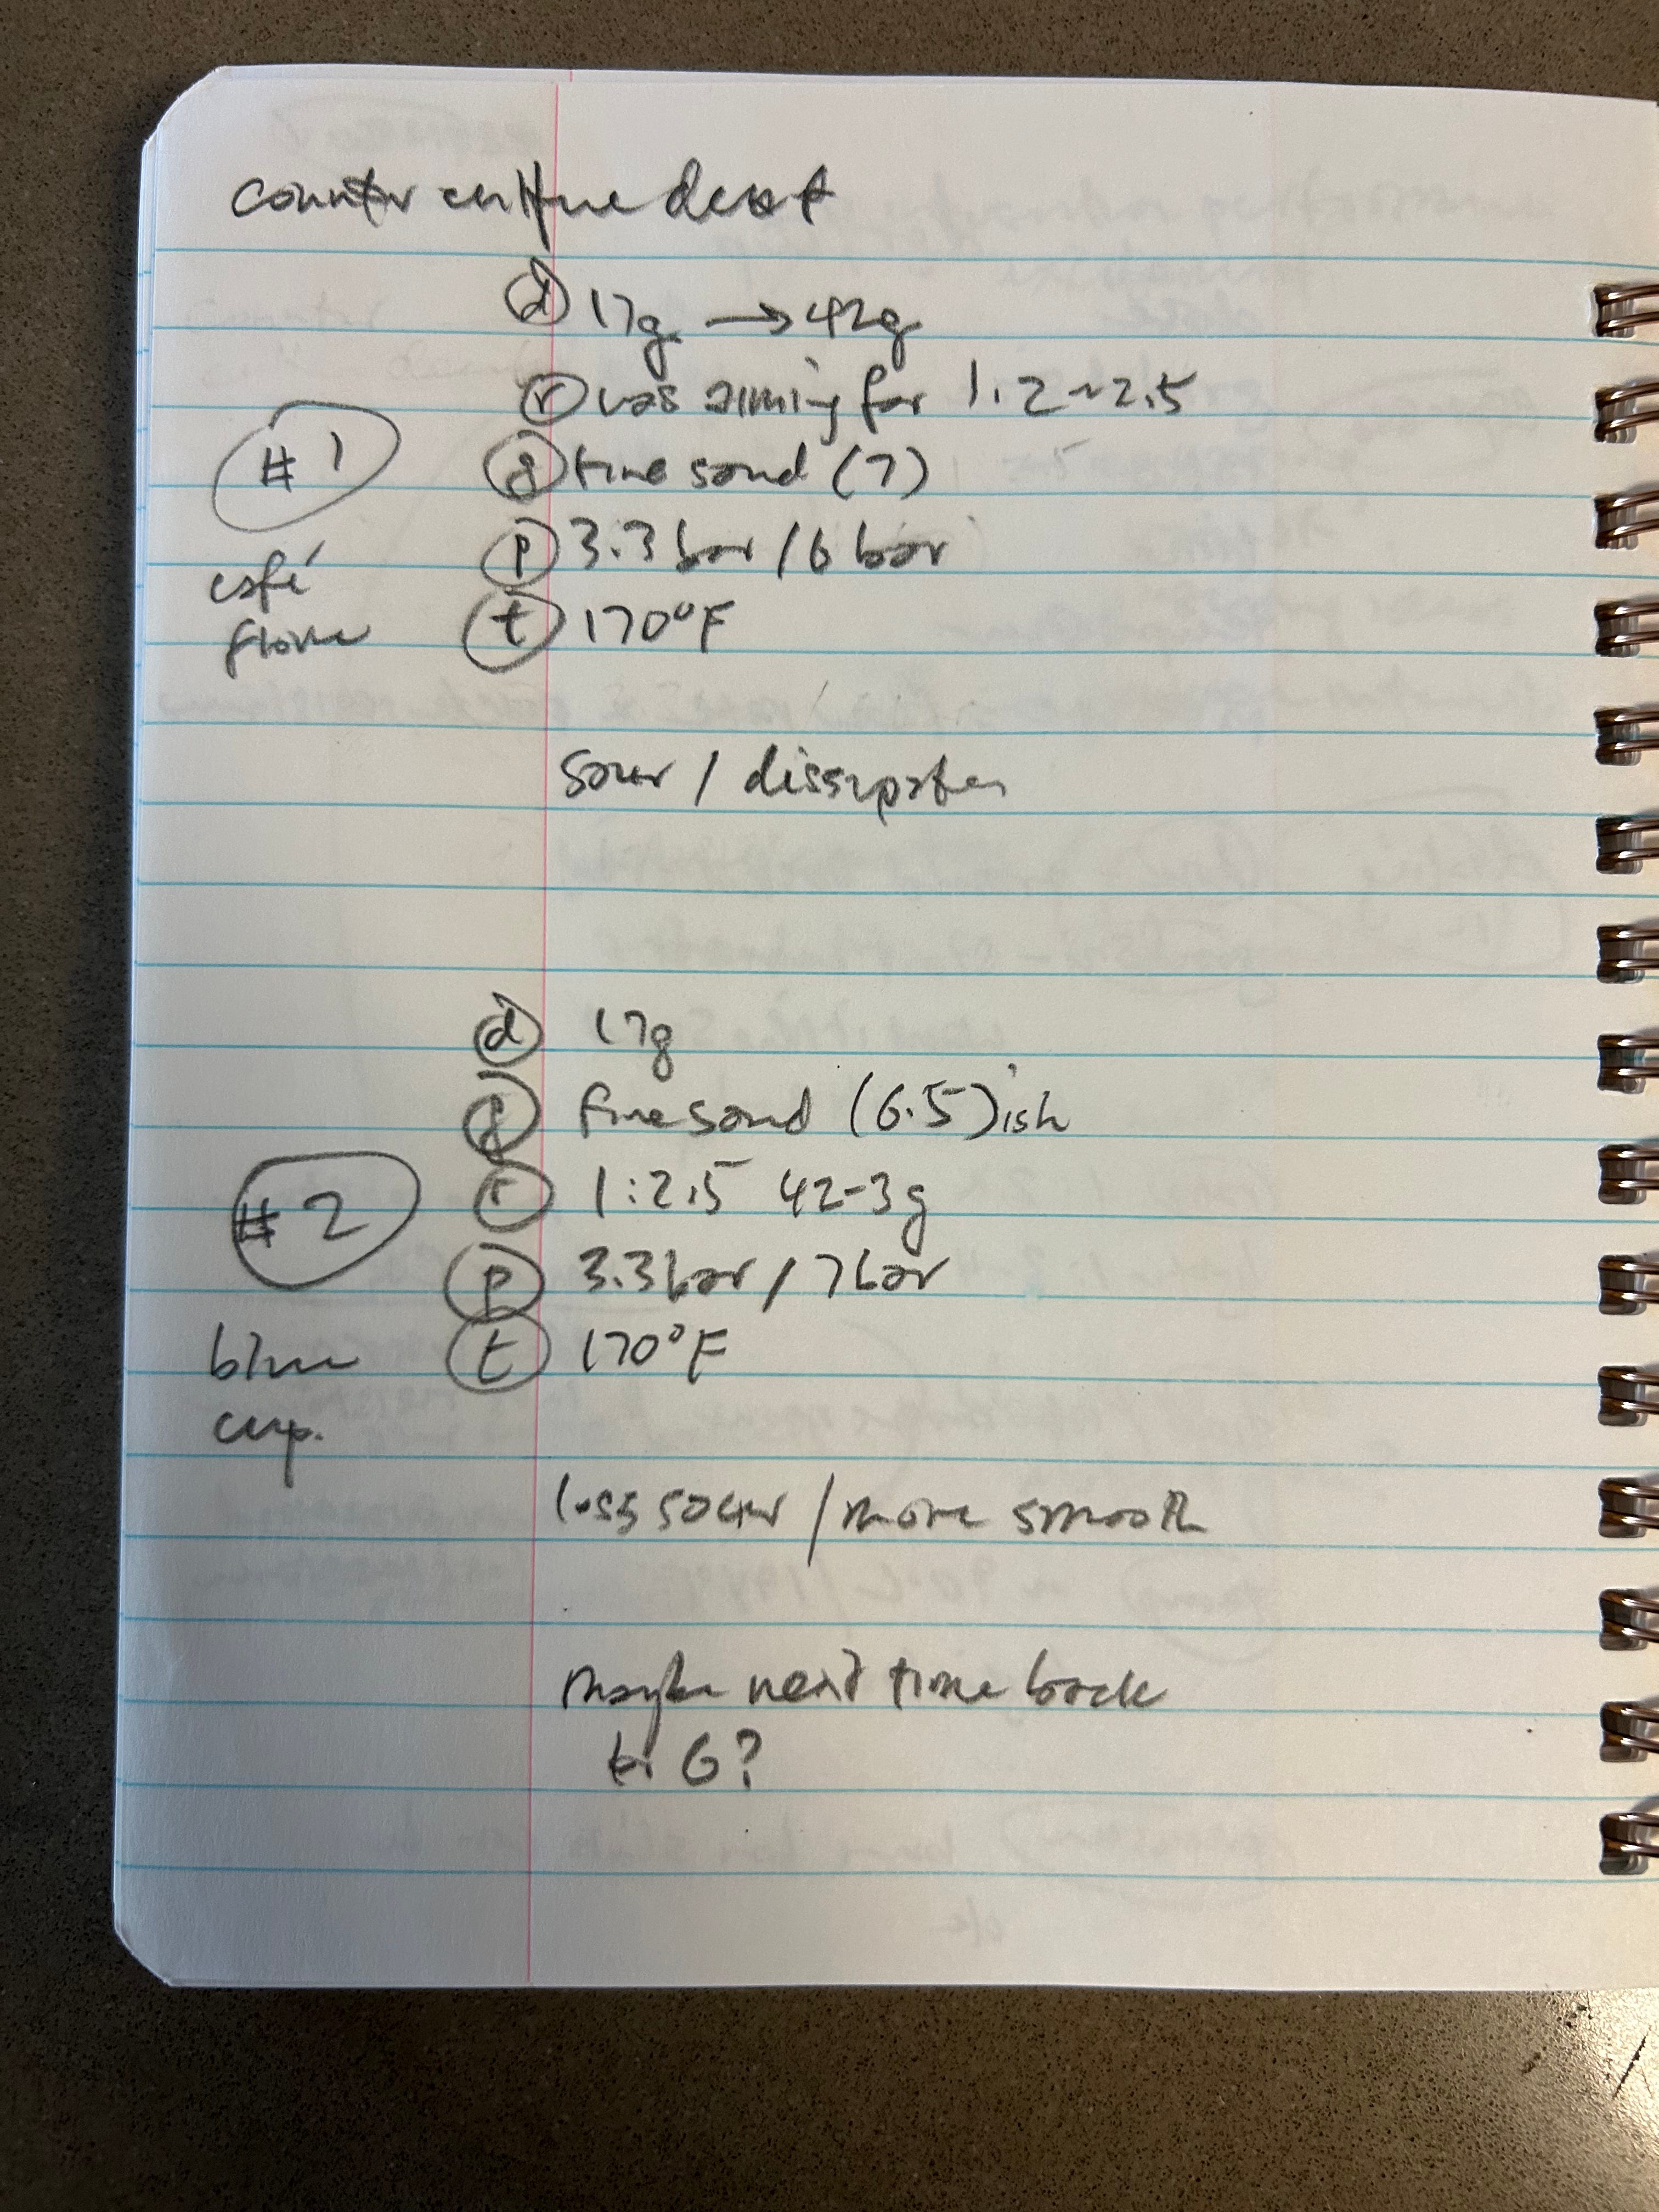 counter culture decaf
#1
café
flore
(d) 17g → 42g
(r) was aiming for 1:2~2.5
(g) fine sand (7)
(p) 3.3 bar / 6 bar
(t) 170°F
sour / dissipates
#2
blue
cup.
(d) 17g
(g) fine sand (6.5)ish
(r) 1:2.5 42-3g
(p) 3.3 bar / 7 bar
(t) 170°F
less sour / more smooth
maybe next time back
to 6?